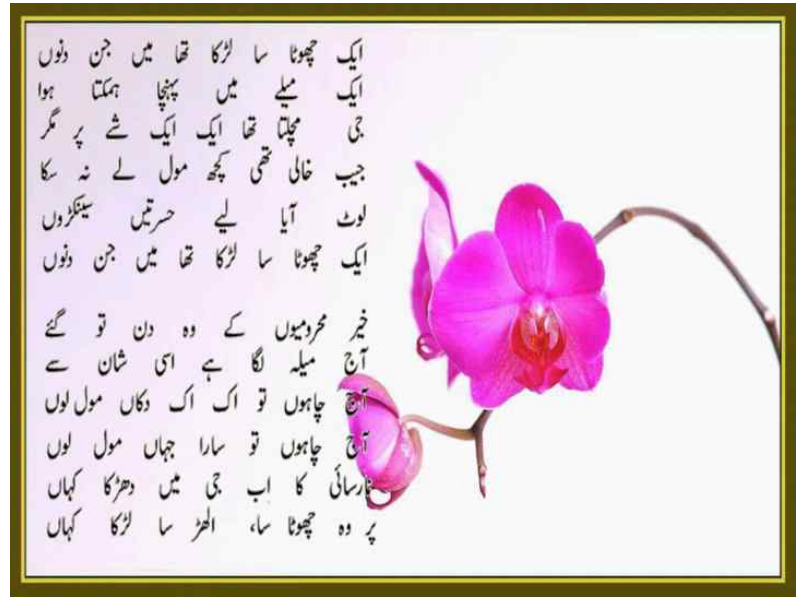 ایک چھوٹا سا لڑکا تھا میں جن دنوں
ایک میلے میں پہنچا ہمکتا ہوا
جی مچلتا تھا ایک ایک شے پر مگر
جیب خالی تھی کچھ مول لے نہ سکا
لوٹ آیا لیے حسرتیں سینکڑوں
ایک چھوٹا سا لڑکا تھا میں جن دنوں
خیر محرومیوں کے وہ دن تو گئے
آج میلہ لگا ہے اسی شان سے
آج چاہوں تو اک اک دکاں مول لوں
آج چاہوں تو سارا جہاں مول لوں
نارسائی کا اب جی میں دھڑکا کہاں
پر وہ چھوٹا سا، الھڑ سا لڑکا کہاں